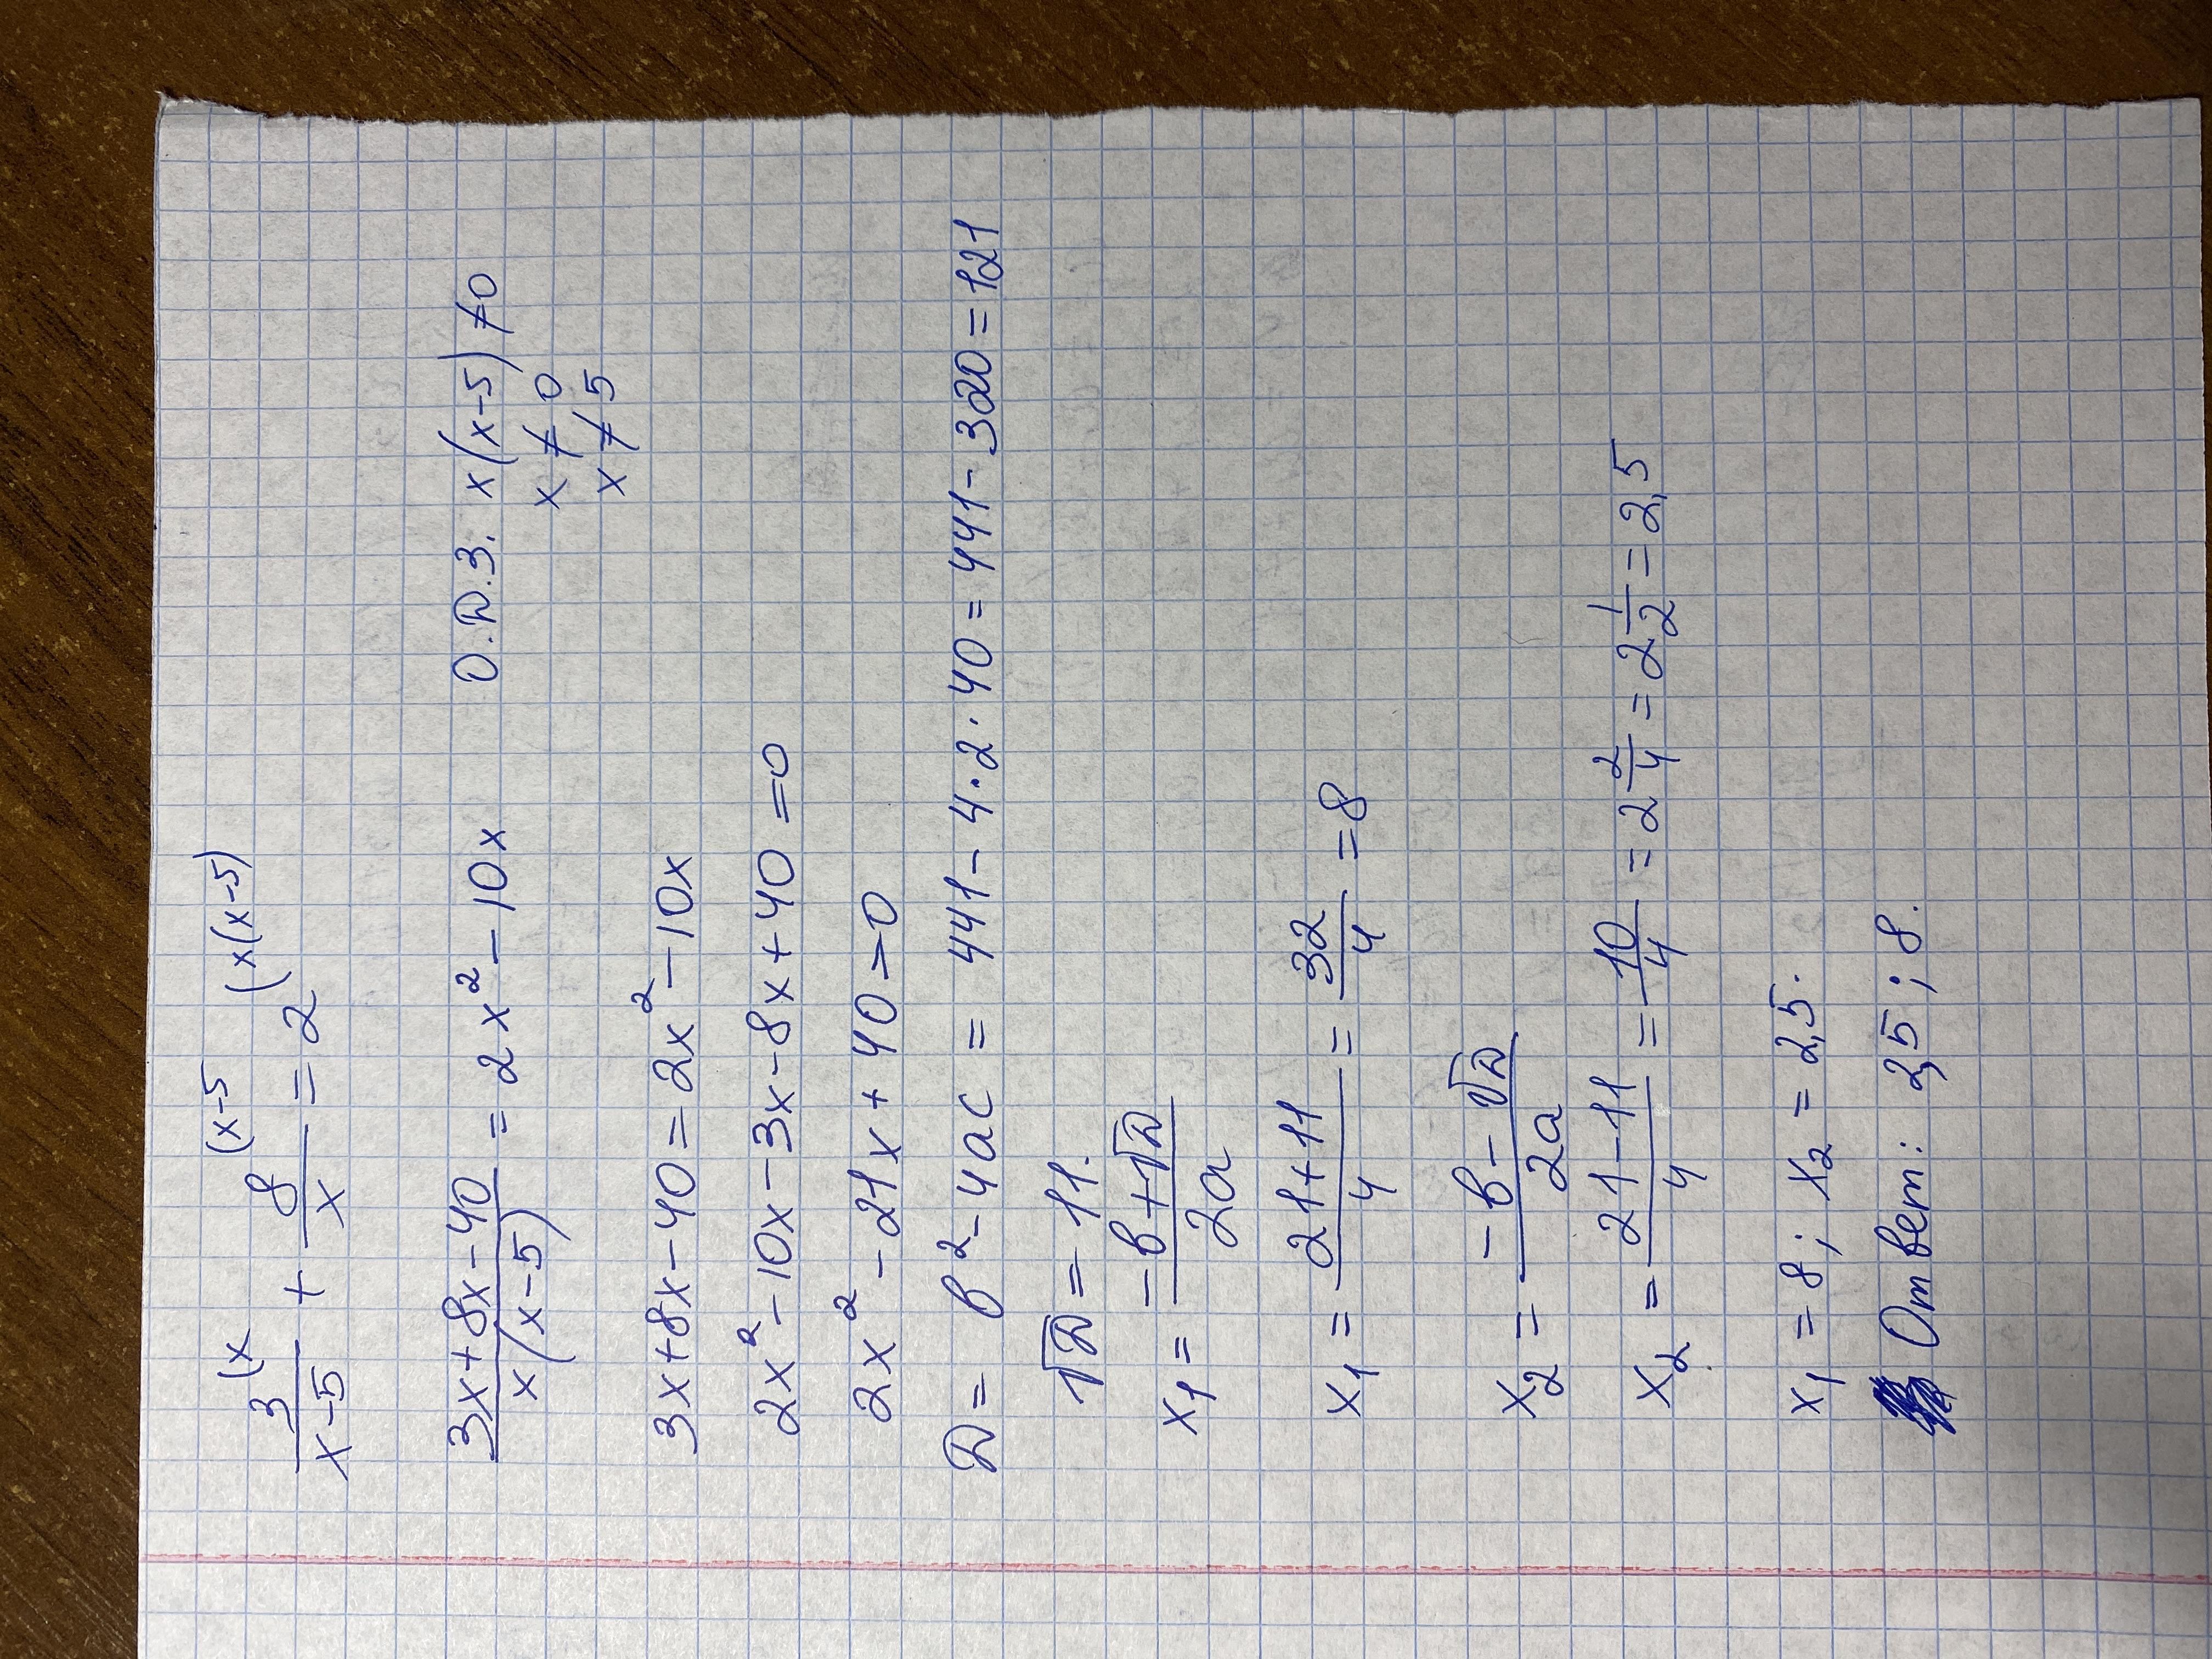 3(x / x-5 + 8(x-5 / x = 2(x(x-5)
3x+8x-40 / x(x-5) = 2x²-10x О.Д.З. x(x-5)≠0
x≠0
x≠5
3x+8x-40=2x²-10x
2x²-10x-3x-8x+40=0
2x²-21x+40=0
D= b²-4ac = 441-4·2·40=441-320=121
√D=11.
x₁= -b+√D / 2a
x₁= 21+11 / 4 = 32/4 =8
x₂= -b-√D / 2a
x₂= 21-11 / 4 = 10/4 = 2 2/4 = 2 1/2 = 2,5
x₁=8; x₂=2,5.
Ответ: 2,5; 8.